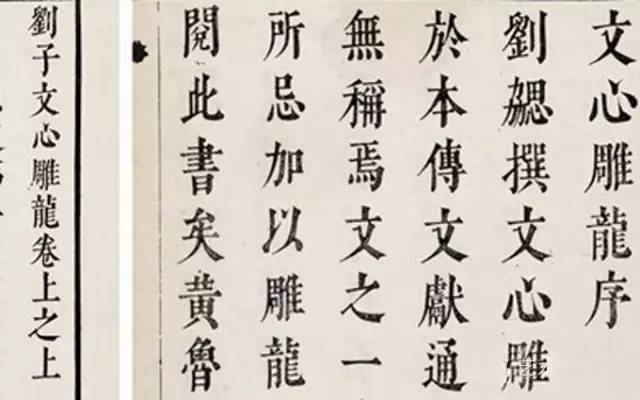 文心雕龍序
劉勰撰文心雕
於本傳文獻通
無稱焉文之一
所忌加以雕龍
閱此書矣黄魯
劉子文心雕龍卷上之上